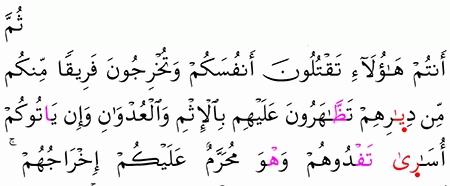 ثُمَّ
أَنتُمْ هَـٰٓؤُلَآءِ تَقْتُلُونَ أَنفُسَكُمْ وَتُخْرِجُونَ فَرِيقًا مِّنكُم
مِّن دِيَـٰرِهِمْ تَظَّـٰهَرُونَ عَلَيْهِم بِٱلْإِثْمِ وَٱلْعُدْوَٰنِ وَإِن يَاتُوكُمْ
أُسَـٰرىٰ تَفْدُوهُمْ وَهْوَ مُحَرَّمٌ عَلَيْكُمْ إِخْرَاجُهُمْ ۚ